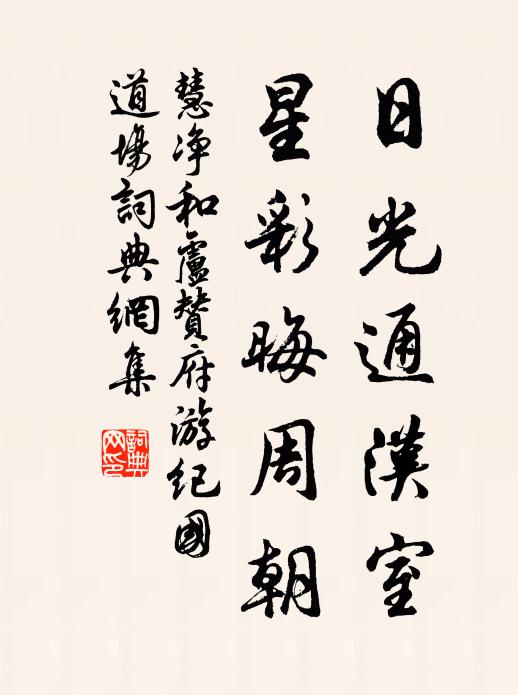 日光通漢室
星彩晦周朝
慧净和盧贊府游紀國
道場詞典網集
詞典
网印